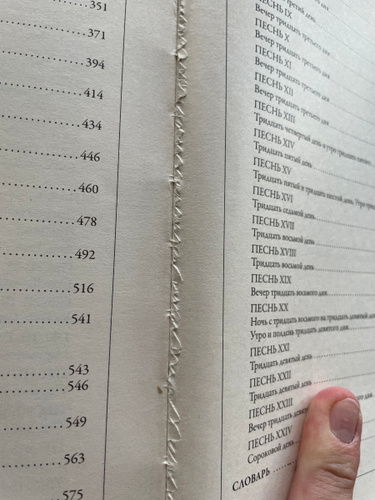 351
371
394
414
434
446
460
478
492
516
541
543
546
549
563
575
ПЕСНЬ IX
Вечер тридцать третьего дня
ПЕСНЬ X
Вечер тридцать третьего дня
ПЕСНЬ XI
Вечер тридцать третьего дня
ПЕСНЬ XII
Вечер тридцать третьего дня
ПЕСНЬ XIII
Тридцать четвертый день и утро тридцать пятого
ПЕСНЬ XIV
Тридцать пятый день
ПЕСНЬ XV
Тридцать пятый и тридцать шестой день. Утро
ПЕСНЬ XVI
Тридцать седьмой день
ПЕСНЬ XVII
Тридцать восьмой день
ПЕСНЬ XVIII
Тридцать восьмой день
ПЕСНЬ XIX
Вечер тридцать восьмого дня
ПЕСНЬ XX
Ночь с тридцать восьмого на тридцать девятый
Утро и полдень тридцать девятого дня
ПЕСНЬ XXI
Тридцать девятый день
ПЕСНЬ XXII
Тридцать девятый день
ПЕСНЬ XXIII
Вечер тридцать дня
ПЕСНЬ XXIV
Сороковой день
СЛОВАРЬ